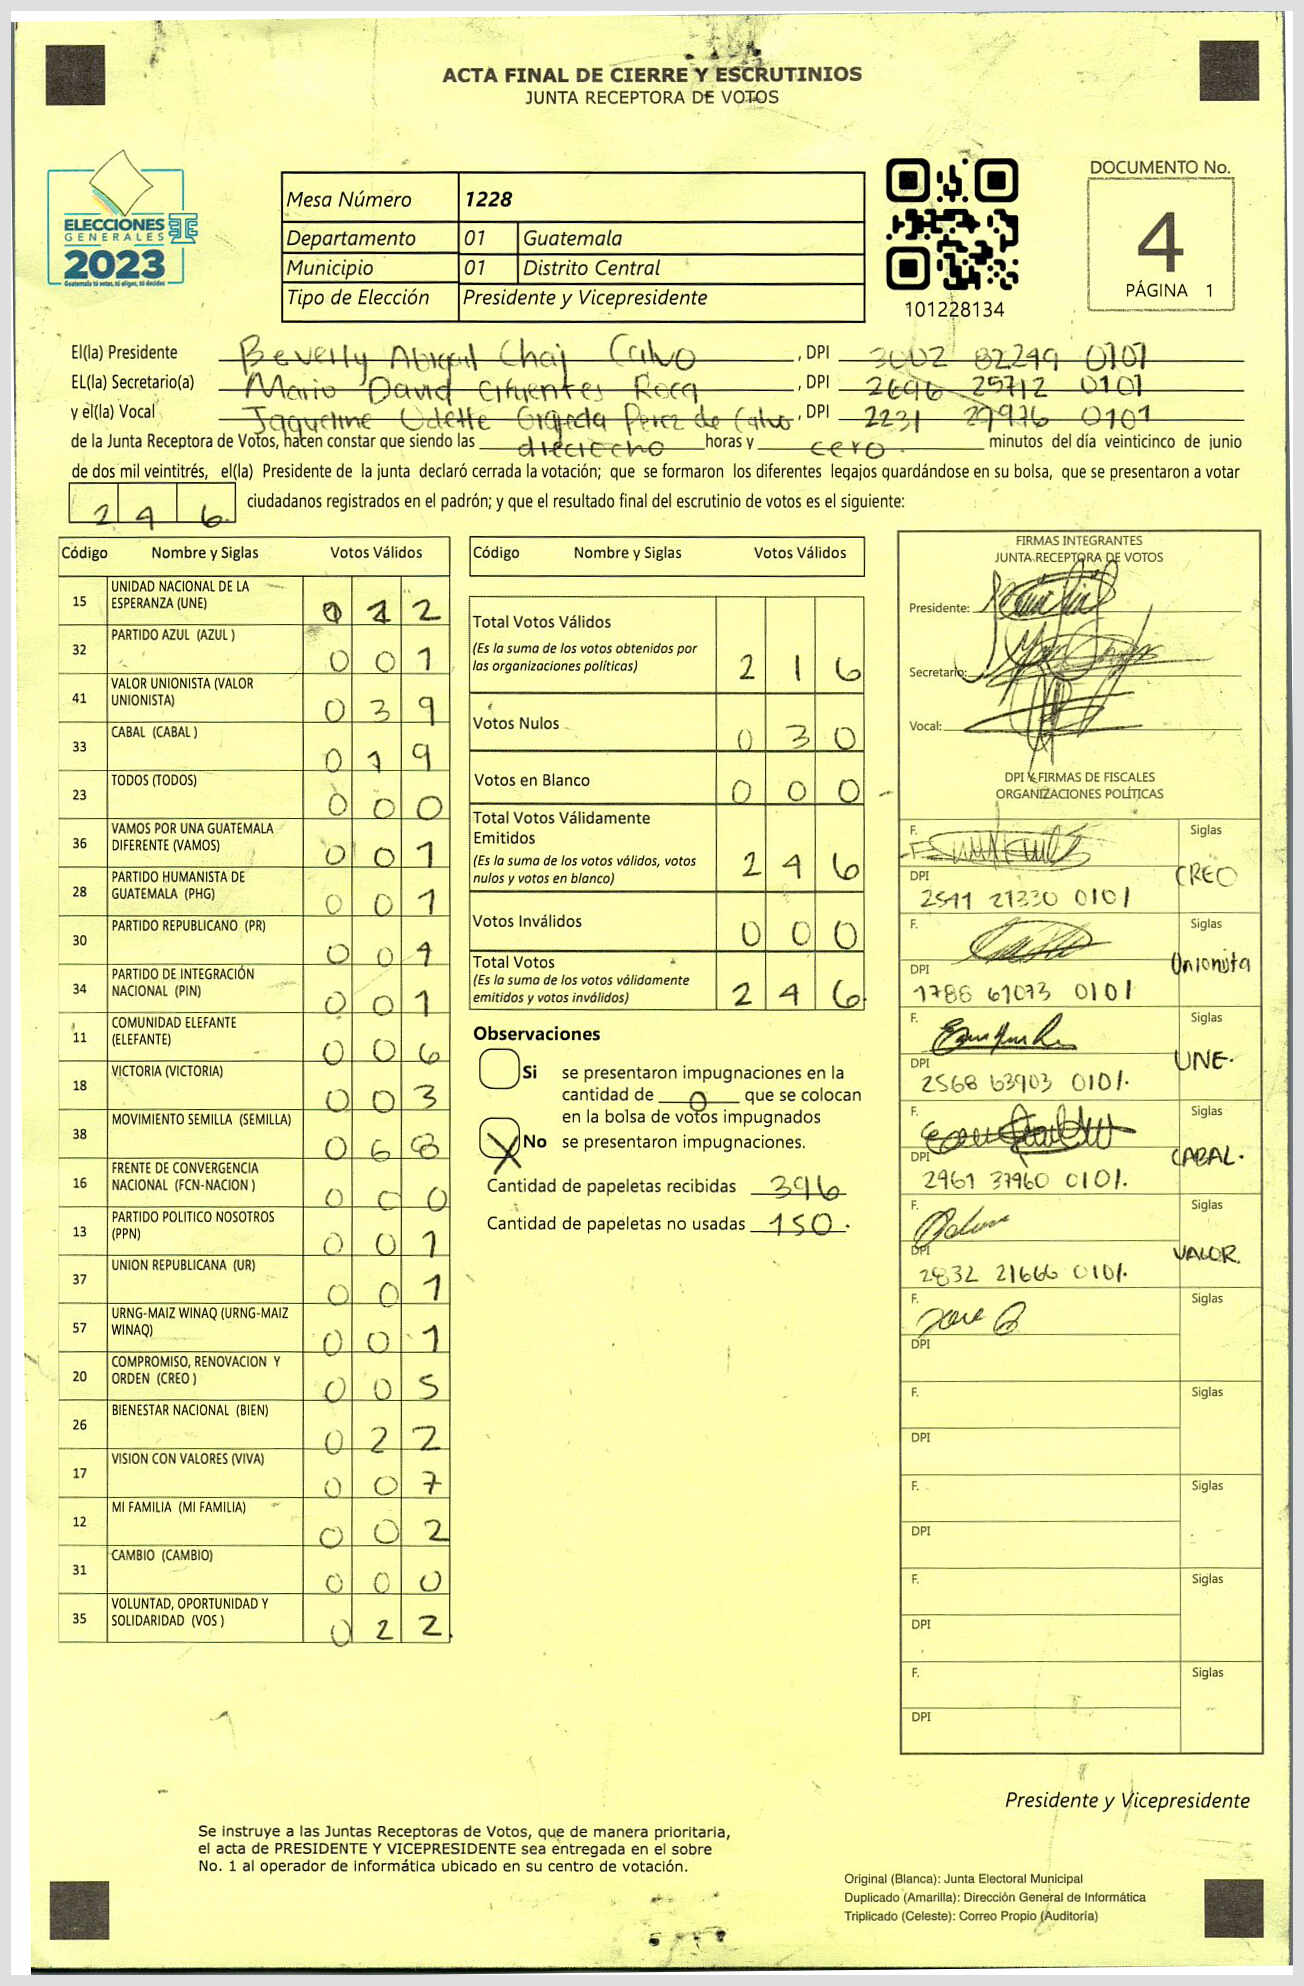 ACTA FINAL DE CIERRE Y ESCRUTINIOS
JUNTA RECEPTORA DE VOTOS
ELECCIONES
GENERALES
2023
Guatemala tú votas, tú eliges, tú decides
Mesa Número 1228
Departamento 01 Guatemala
Municipio 01 Distrito Central
Tipo de Elección Presidente y Vicepresidente
101228134
DOCUMENTO No.
4
PÁGINA 1
El(la) Presidente Beverly Abigail Chaj Calvo, DPI 3002 82299 0101
EL(la) Secretario(a) Mario David Cifuentes Roca, DPI 2696 25712 0101
y el(la) Vocal Jaqueline Odette Grajeda Perez de Calvo, DPI 2231 27976 0101
de la Junta Receptora de Votos, hacen constar que siendo las dieciocho horas y cero minutos del día veinticinco de junio
de dos mil veintitrés, el(la) Presidente de la junta declaró cerrada la votación; que se formaron los diferentes legajos guardándose en su bolsa, que se presentaron a votar
246 ciudadanos registrados en el padrón; y que el resultado final del escrutinio de votos es el siguiente:
Código Nombre y Siglas Votos Válidos
15 UNIDAD NACIONAL DE LA ESPERANZA (UNE) 0 1 2
32 PARTIDO AZUL (AZUL ) 0 0 1
41 VALOR UNIONISTA (VALOR UNIONISTA) 0 3 9
33 CABAL (CABAL ) 0 1 9
23 TODOS (TODOS) 0 0 0
36 VAMOS POR UNA GUATEMALA DIFERENTE (VAMOS) 0 0 1
28 PARTIDO HUMANISTA DE GUATEMALA (PHG) 0 0 1
30 PARTIDO REPUBLICANO (PR) 0 0 1
34 PARTIDO DE INTEGRACIÓN NACIONAL (PIN) 0 0 1
11 COMUNIDAD ELEFANTE (ELEFANTE) 0 0 6
18 VICTORIA (VICTORIA) 0 0 3
38 MOVIMIENTO SEMILLA (SEMILLA) 0 6 8
16 FRENTE DE CONVERGENCIA NACIONAL (FCN-NACION ) 0 0 0
13 PARTIDO POLITICO NOSOTROS (PPN) 0 0 1
37 UNION REPUBLICANA (UR) 0 0 1
57 URNG-MAIZ WINAQ (URNG-MAIZ WINAQ) 0 0 1
20 COMPROMISO, RENOVACION Y ORDEN (CREO ) 0 0 5
26 BIENESTAR NACIONAL (BIEN) 0 2 2
17 VISION CON VALORES (VIVA) 0 0 7
12 MI FAMILIA (MI FAMILIA) 0 0 2
31 CAMBIO (CAMBIO) 0 0 0
35 VOLUNTAD, OPORTUNIDAD Y SOLIDARIDAD (VOS ) 0 2 2
Código Nombre y Siglas Votos Válidos
Total Votos Válidos 2 1 6
(Es la suma de los votos obtenidos por
las organizaciones políticas)
Votos Nulos 0 3 0
Votos en Blanco 0 0 0
Total Votos Válidamente
Emitidos 2 4 6
(Es la suma de los votos válidos, votos
nulos y votos en blanco)
Votos Inválidos 0 0 0
Total Votos 2 4 6
(Es la suma de los votos válidamente
emitidos y votos inválidos)
Observaciones
Si se presentaron impugnaciones en la
cantidad de 0 que se colocan
en la bolsa de votos impugnados
X No se presentaron impugnaciones.
Cantidad de papeletas recibidas 396
Cantidad de papeletas no usadas 150.
FIRMAS INTEGRANTES
JUNTA RECEPTORA DE VOTOS
Presidente:
Secretario:
Vocal:
DPI Y FIRMAS DE FISCALES
ORGANIZACIONES POLÍTICAS
F. Siglas
CREO
DPI
2591 21330 0101
F. Siglas
Unionista
DPI
1786 61073 0101
F. Siglas
UNE.
DPI
2568 63903 0101.
F. Siglas
CABAL.
DPI
2961 37960 0101.
F. Siglas
VALOR
DPI
2832 21666 0101.
F. Siglas
DPI
F. Siglas
DPI
F. Siglas
DPI
F. Siglas
DPI
F. Siglas
DPI
Presidente y Vicepresidente
Se instruye a las Juntas Receptoras de Votos, que de manera prioritaria,
el acta de PRESIDENTE Y VICEPRESIDENTE sea entregada en el sobre
No. 1 al operador de informática ubicado en su centro de votación.
Original (Blanca): Junta Electoral Municipal
Duplicado (Amarilla): Dirección General de Informática
Triplicado (Celeste): Correo Propio (Auditoría)